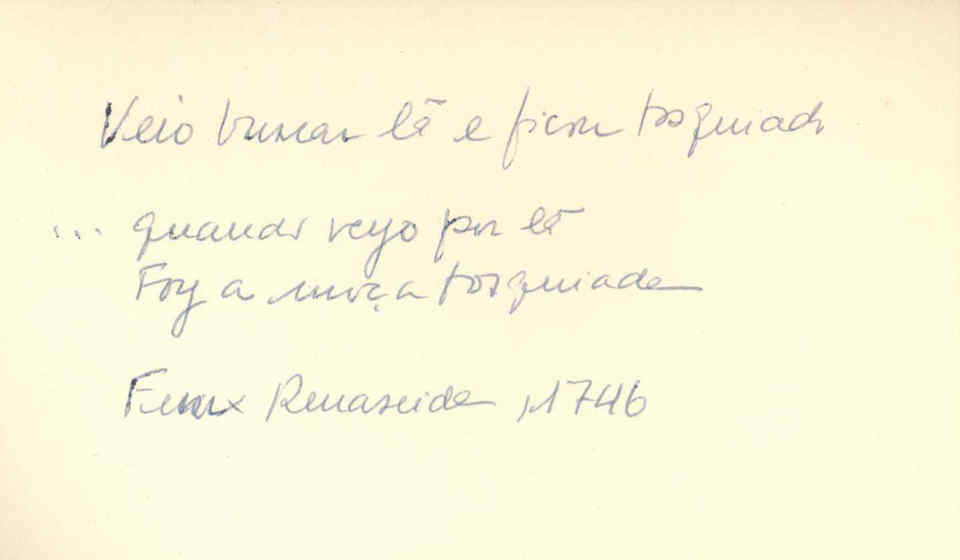 Veio buscar lã e ficou tosquiado
... quando veyo por lã
Foy a moça tosquiada
Fenix Renascida, 1746